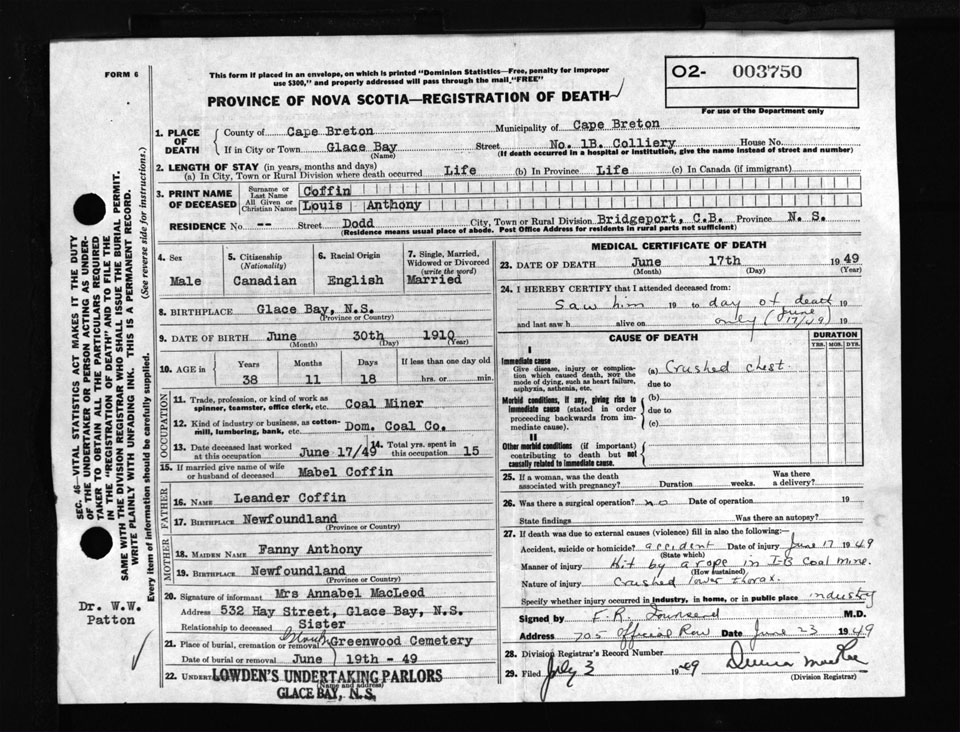 FORM 6
This form if placed in an envelope, on which is printed "Dominion Statistics—Free, penalty for improper
use $300," and properly addressed will pass through the mail "FREE"
PROVINCE OF NOVA SCOTIA—REGISTRATION OF DEATH
02- 003750
For use of the Department only
1. PLACE OF DEATH
County of Cape Breton Municipality of Cape Breton
If in City or Town Glace Bay Street No. 1B. Colliery House No.
(Name) (If death occurred in a hospital or institution, give the name instead of street and number)
2. LENGTH OF STAY (in years, months and days)
(a) In City, Town or Rural Division where death occurred Life (b) In Province Life (c) In Canada (if immigrant)
3. PRINT NAME OF DECEASED
Surname or Last Name Coffin
All Given or Christian Names Louis Anthony
RESIDENCE No. -- Street Dodd City, Town or Rural Division Bridgeport, C.B. Province N. S.
(Residence means usual place of abode. Post Office Address for residents in rural parts not sufficient)
4. Sex
Male
5. Citizenship
(Nationality)
Canadian
6. Racial Origin
English
7. Single, Married, Widowed or Divorced
(write the word)
Married
8. BIRTHPLACE Glace Bay, N.S.
(Province or Country)
9. DATE OF BIRTH June 30th 1910
(Month) (Day) (Year)
10. AGE in
Years Months Days If less than one day old
38 11 18 hrs. or min.
OCCUPATION
11. Trade, profession, or kind of work as
spinner, teamster, office clerk, etc. Coal Miner
12. Kind of industry or business, as cotton-
mill, lumbering, bank, etc. Dom. Coal Co.
13. Date deceased last worked
at this occupation June 17/49
14. Total yrs. spent in
this occupation 15
15. If married give name of wife
or husband of deceased Mabel Coffin
FATHER
16. NAME Leander Coffin
17. BIRTHPLACE Newfoundland
(Province or Country)
MOTHER
18. MAIDEN NAME Fanny Anthony
19. BIRTHPLACE Newfoundland
(Province or Country)
20. Signature of informant Mrs Annabel MacLeod
Address 532 Hay Street, Glace Bay, N.S.
Relationship to deceased Sister
21. Place of burial, cremation or removal Greenwood Cemetery
Date of burial or removal June 19th - 49
22. UNDERT LOWDEN'S UNDERTAKING PARLORS
(Name and address)
GLACE BAY, N.S.
MEDICAL CERTIFICATE OF DEATH
23. DATE OF DEATH June 17th 1949
(Month) (Day) (Year)
24. I HEREBY CERTIFY that I attended deceased from:
Saw him 19 to day of death 19
and last saw h alive on only (June 17/49) 19
CAUSE OF DEATH
DURATION
YRS. MOS. DYS.
I
Immediate cause
Give disease, injury or complica-
tion which caused death, NOT the
mode of dying, such as heart failure,
asphyxia, asthenia, etc.
(a) Crushed chest.
due to
Morbid conditions, if any, giving rise to
immediate cause (stated in order
proceeding backwards from im-
mediate cause).
(b)
due to
(c)
II
Other morbid conditions (if important)
contributing to death but not
causally related to immediate cause.
25. If a woman, was the death
associated with pregnancy? Duration weeks. Was there
a delivery?
26. Was there a surgical operation? no Date of operation 19
State findings Was there an autopsy?
27. If death was due to external causes (violence) fill in also the following:—
Accident, suicide or homicide? accident Date of injury June 17 1949
(State which)
Manner of injury Hit by a rope in I-B Coal mine.
(How sustained)
Nature of injury Crushed lower thorax.
Specify whether injury occurred in Industry, in home, or in public place industry
Signed by F. R. Townsend M.D.
Address 705 Official Row Date June 23 1949
28. Division Registrar's Record Number
29. Filed July 3 1949
(Division Registrar)
SEC. 46— VITAL STATISTICS ACT MAKES IT THE DUTY
OF THE UNDERTAKER OR PERSON ACTING AS UNDER-
TAKER TO OBTAIN ALL THE PARTICULARS REQUIRED
IN THE "REGISTRATION OF DEATH" AND TO FILE THE
SAME WITH THE DIVISION REGISTRAR WHO SHALL ISSUE THE BURIAL PERMIT.
WRITE PLAINLY WITH UNFADING INK. THIS IS A PERMANENT RECORD.
Every item of information should be carefully supplied. (See reverse side for instructions.)
Dr. W.W.
Patton